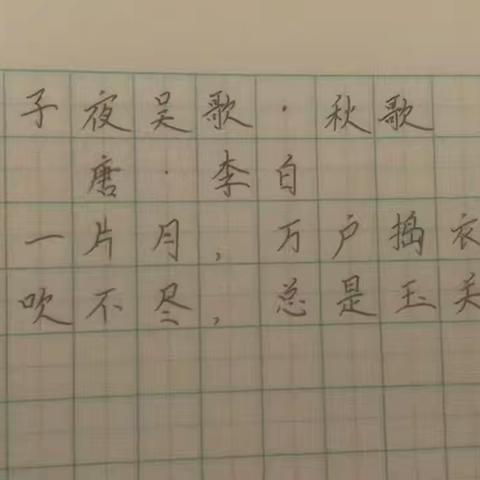 子夜吴歌·秋歌
唐·李白
一片月,万户捣衣
吹不尽,总是玉关